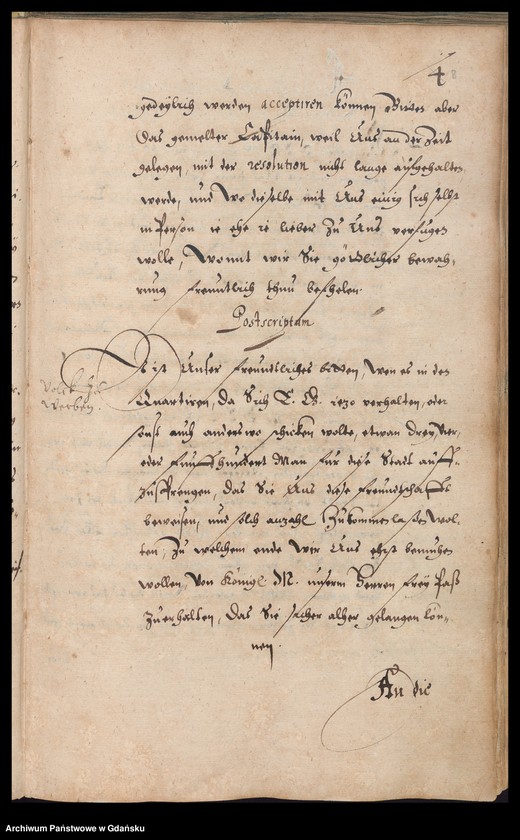 4
8
gedeylich werden acceptiren können Bitten aber
Das gemelter Capitain, weil Uns an der Zeit
gelegen, mit der resolution nicht lange aufgehalten
werde, und wo dieselbe mit Uns einig sich selbst
in Person ie ehe ie lieber zu Uns verfugen
wolle, Womit wir Sie göttlicher bewah-
rung freuntlich thun befhelen.
Postscriptum
Volck zu
werben.
Ist Unser freundtliches bitten, wen es in den
Quartiren, da Sich E. G. itzo verhalten, oder
sonst auch anderswo schicken wolte, etwan drey, vier,
oder funffhundert Man fur diese Stadt auff-
zuspringen, das Sie Uns diese freundtschafft
beweisen, und solch anzahl zukommen laßen wol-
ten, zu welchem ende wir Uns ehist bemuhen
wollen, von Königl. M. unserm Herren frey Paß
zuerhalten, das Sie sicher alher gelangen kön-
nen.
An die
Archiwum Państwowe w Gdańsku